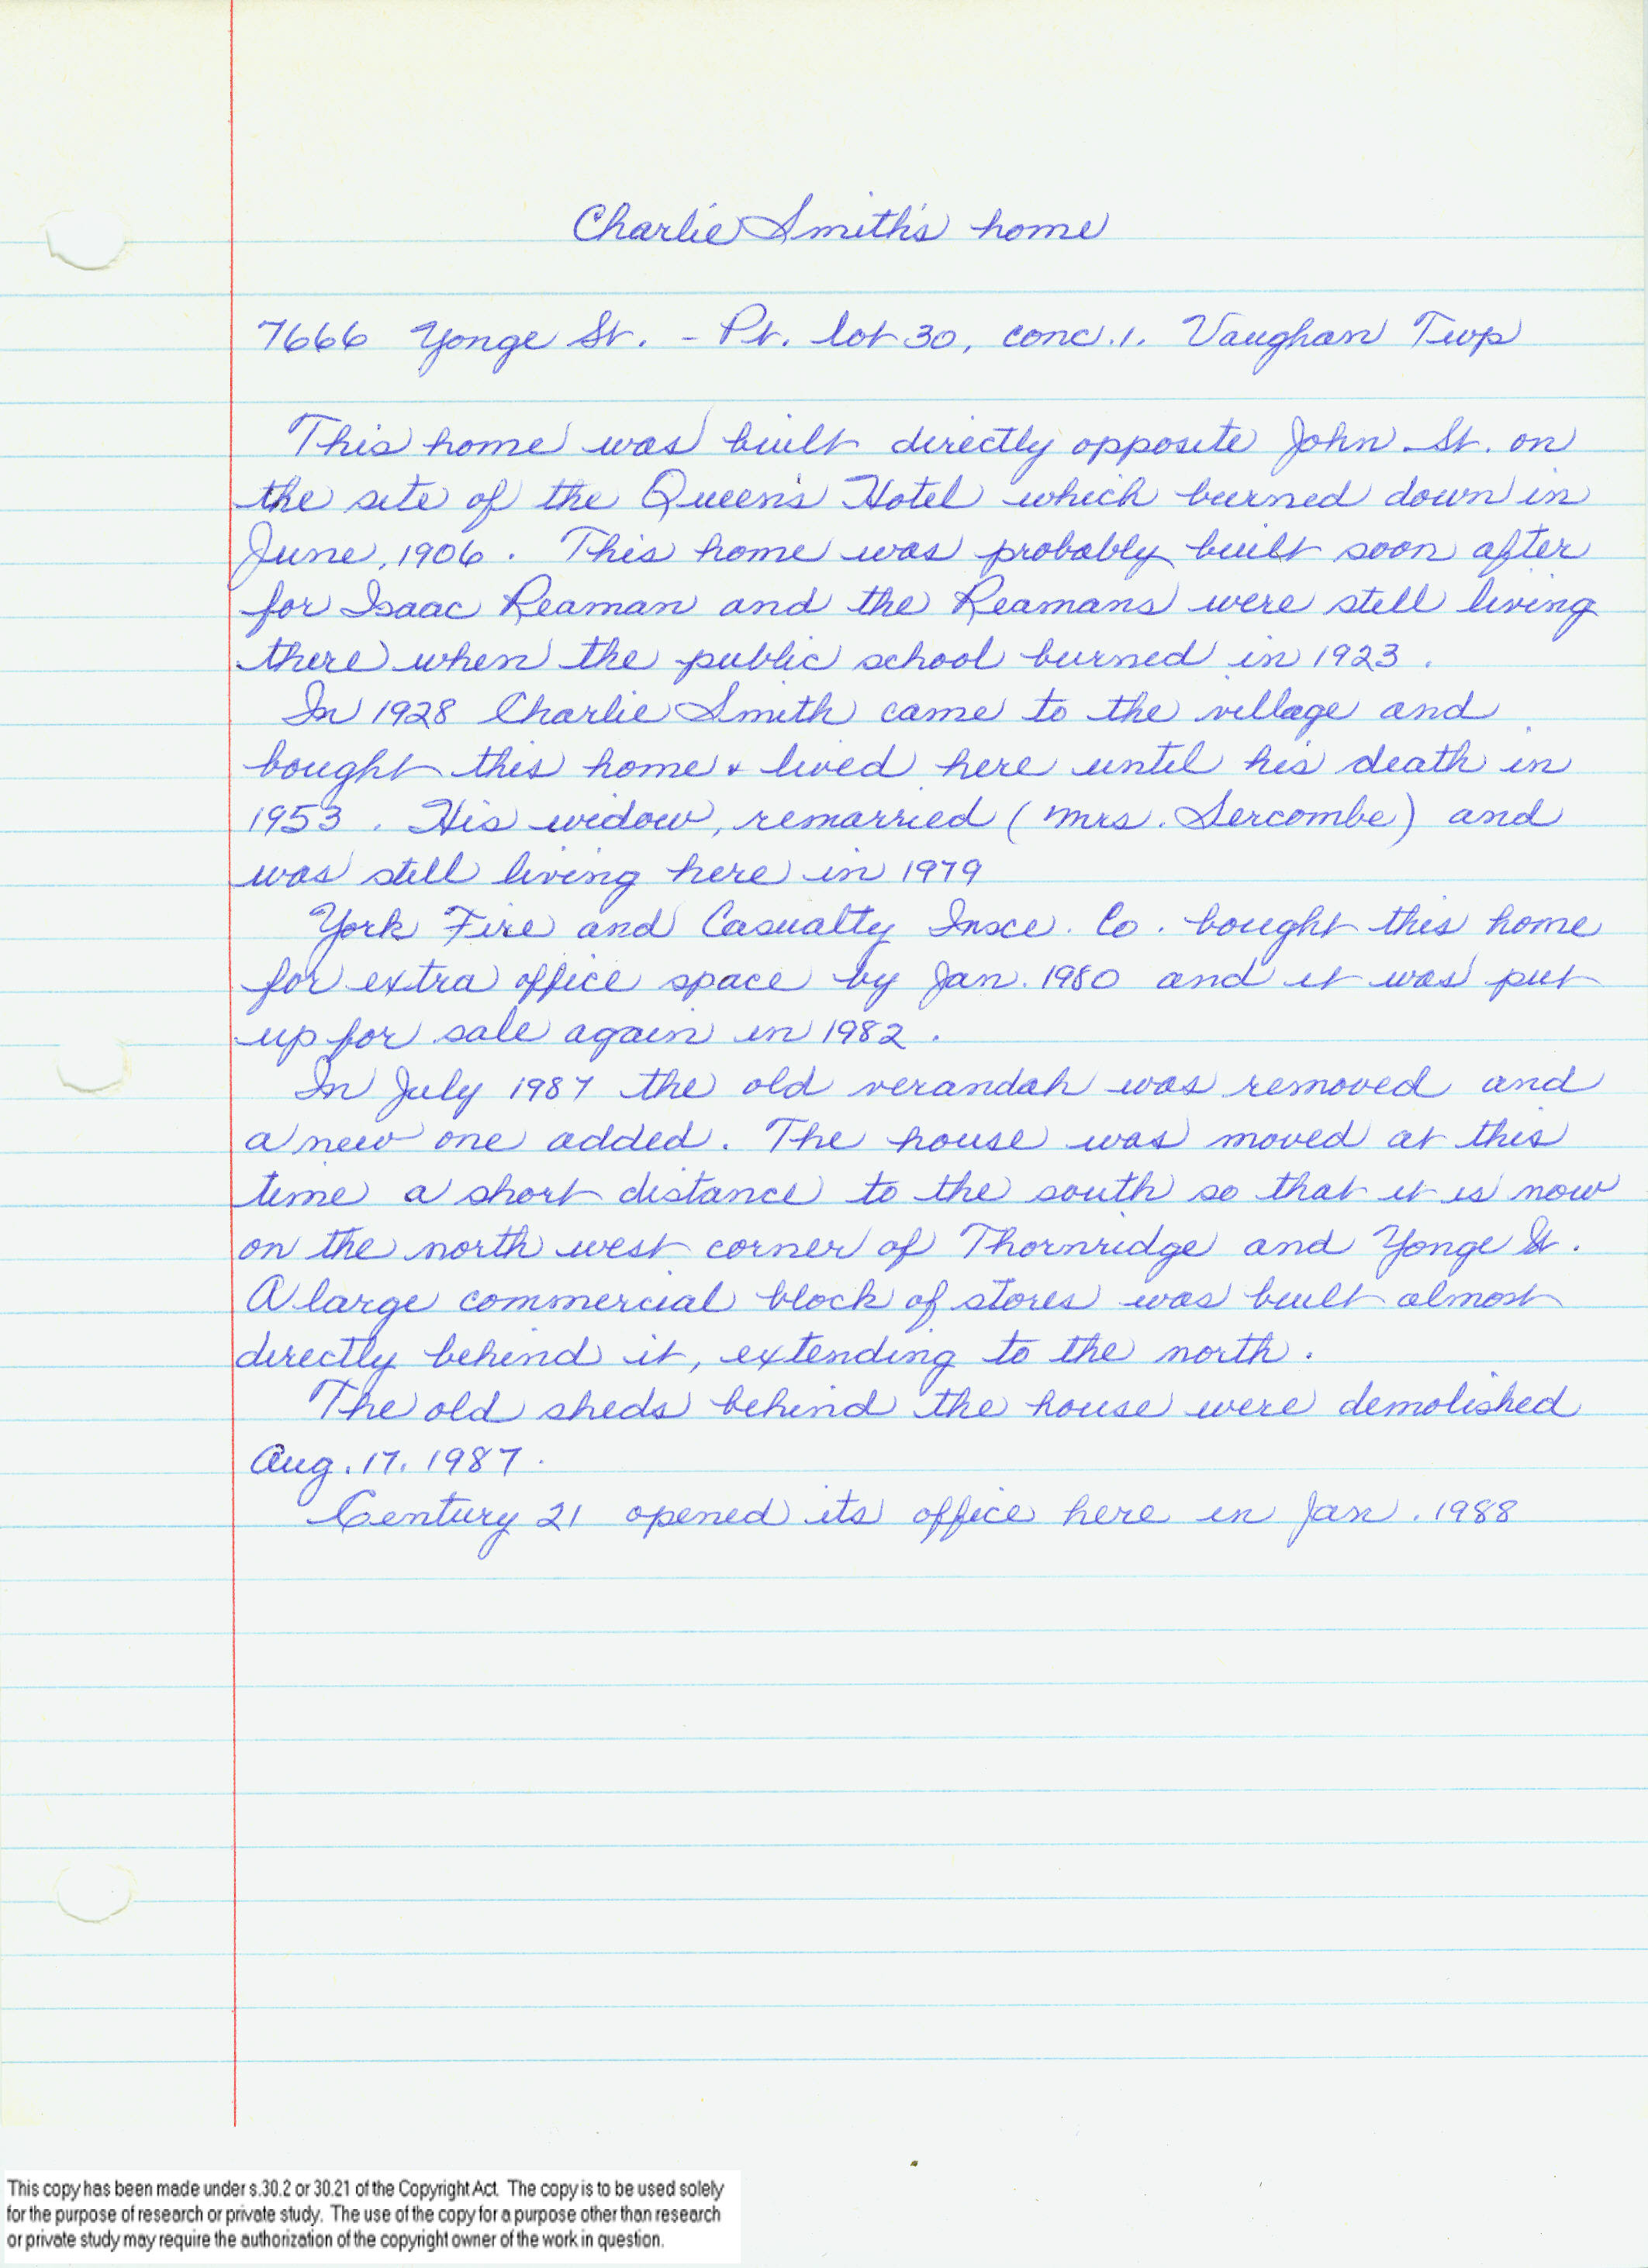 Charlie Smith's home
7666 Yonge St. - Pt. lot 30, conc. 1. Vaughan Twp
This home was built directly opposite John St. on
the site of the Queen's Hotel which burned down in
June, 1906. This home was probably built soon after
for Isaac Reaman and the Reamans were still living
there when the public school burned in 1923.
In 1928 Charlie Smith came to the village and
bought this home & lived here until his death in
1953. His widow, remarried (Mrs. Sercombe) and
was still living here in 1979
York Fire and Casualty Insce. Co. bought this home
for extra office space by Jan. 1980 and it was put
up for sale again in 1982.
In July 1987 the old verandah was removed and
a new one added. The house was moved at this
time a short distance to the south so that it is now
on the north west corner of Thornridge and Yonge St.
A large commercial block of stores was built almost
directly behind it, extending to the north.
The old sheds behind the house were demolished
Aug. 17. 1987.
Century 21 opened its office here in Jan. 1988
This copy has been made under s.30.2 or 30.21 of the Copyright Act. The copy is to be used solely
for the purpose of research or private study. The use of the copy for a purpose other than research
or private study may require the authorization of the copyright owner of the work in question.